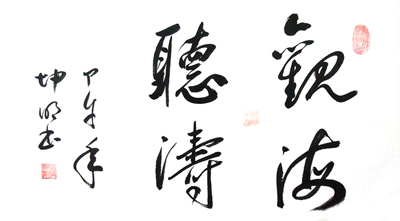 觀海
聽濤
甲午年
坤明书